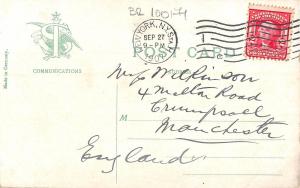 BR 1001-4
NEW YORK, N.Y. STA.
SEP 27
9-PM
190
POST CARD
Made in Germany.
COMMUNICATIONS
Miss Wilkinson
4 Melton Road
Crumpsall
Manchester
England
M